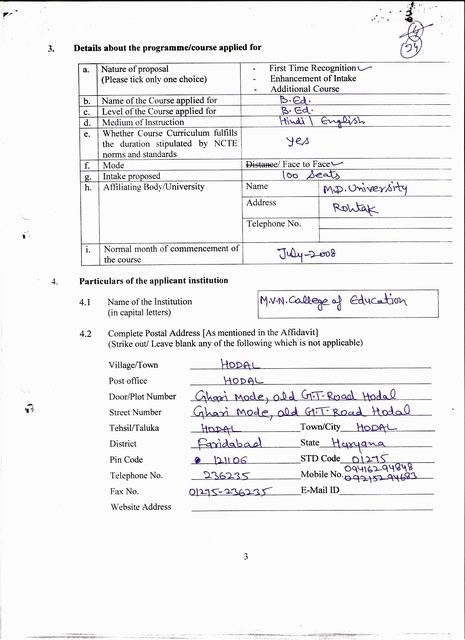 4
34
3. Details about the programme/course applied for
a. Nature of proposal - First Time Recognition
(Please tick only one choice) - Enhancement of Intake
- Additional Course
b. Name of the Course applied for B.Ed.
c. Level of the Course applied for B.Ed.
d. Medium of Instruction Hindi / English
e. Whether Course Curriculum fulfills
the duration stipulated by NCTE yes
norms and standards
f. Mode Distance/ Face to Face
g. Intake proposed 100 Seats
h. Affiliating Body/University Name M.D. University
Address Rohtak
Telephone No.
i. Normal month of commencement of July-2008
the course
4. Particulars of the applicant institution
4.1 Name of the Institution M.V.N. College of Education
(in capital letters)
4.2 Complete Postal Address [As mentioned in the Affidavit]
(Strike out/ Leave blank any of the following which is not applicable)
Village/Town HODAL
Post office HODAL
Door/Plot Number Ghari Mode, old G.T. Road Hodal
Street Number Ghari Mode, old G.T. Road Hodal
Tehsil/Taluka HODAL Town/City HODAL
District Faridabad State Haryana
Pin Code 121106 STD Code 01275
Telephone No. 236235 Mobile No. 09416294848
09215294683
Fax No. 01275-236235 E-Mail ID
Website Address
3